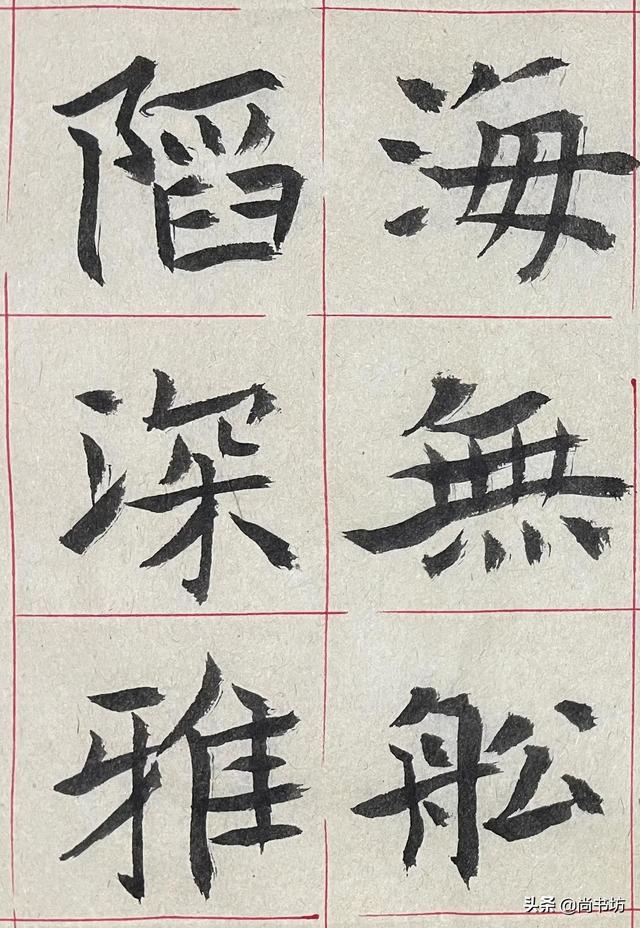 海無舩
䧟深雅
头条 @尚书坊